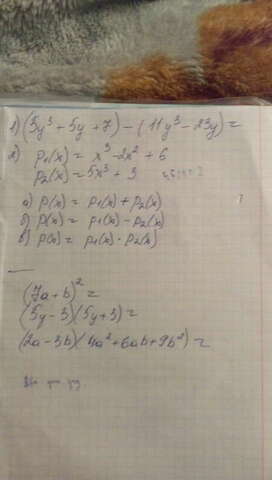 1) (5y³ + 5y + 7) - (11y³ - 23y) =
2) p₁(x) = x³ - 2x² + 6
p₂(x) = 5x³ + 3
а) p(x) = p₁(x) + p₂(x)
б) p(x) = p₁(x) - p₂(x)
в) p(x) = p₁(x) · p₂(x)
(7a + b)² =
(5y - 3)(5y + 3) =
(2a - 3b)(4a² + 6ab + 9b²) =